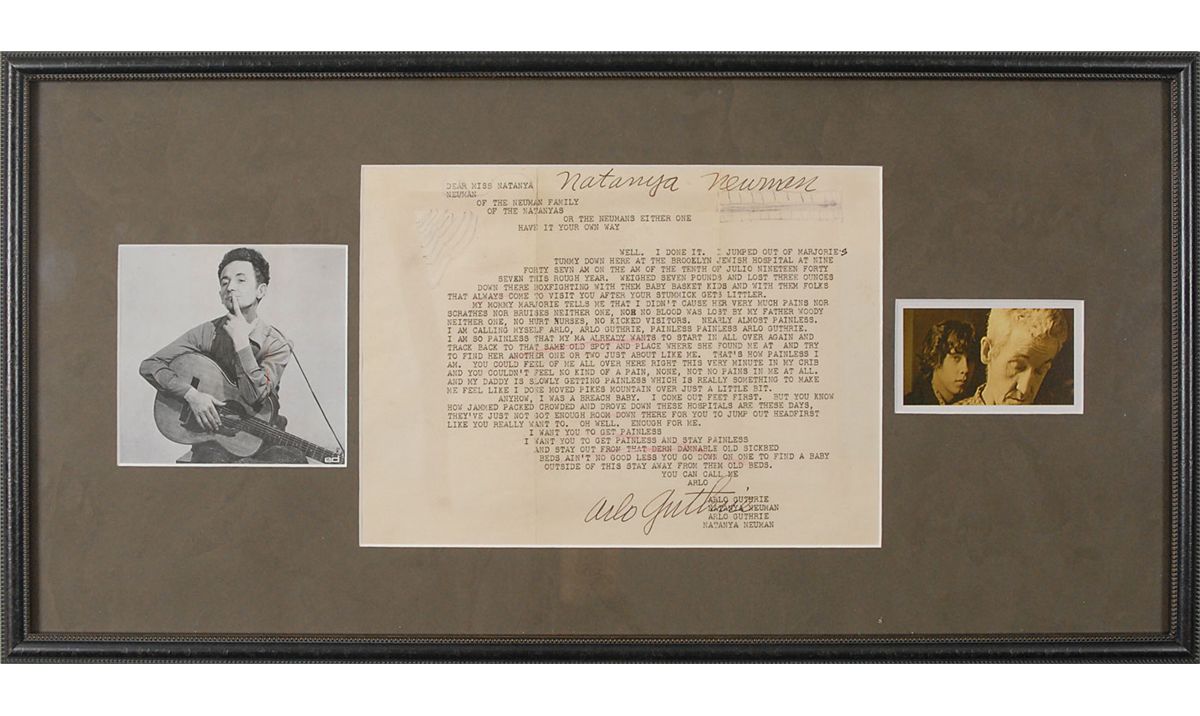 Natanya Neuman
DEAR MISS NATANYA
NEUMAN
OF THE NEUMAN FAMILY
OF THE NATANYAS
OR THE NEUMANS EITHER ONE
HAVE IT YOUR OWN WAY
WELL. I DONE IT. I JUMPED OUT OF MARJORIE'S
TUMMY DOWN HERE AT THE BROOKLYN JEWISH HOSPITAL AT NINE
FORTY SEVN AM ON THE AM OF THE TENTH OF JULIO NINETEEN FORTY
SEVEN THIS ROUGH YEAR. WEIGHED SEVEN POUNDS AND LOST THREE OUNCES
DOWN THERE BOXFIGHTING WITH THEM BABY BASKET KIDS AND WITH THEM FOLKS
THAT ALWAYS COME TO VISIT YOU AFTER YOUR STUMMICK GETS LITTLER.
MY MOMMY MARJORIE TELLS ME THAT I DIDN'T CAUSE HER VERY MUCH PAINS NOR
SCRATHES NOR BRUISES NEITHER ONE, NOR NO BLOOD WAS LOST BY MY FATHER WOODY
NEITHER ONE, NO HURT NURSES, NO KICKED VISITORS. NEARLY ALMOST PAINLESS.
I AM CALLING MYSELF ARLO, ARLO GUTHRIE, PAINLESS PAINLESS ARLO GUTHRIE.
I AM SO PAINLESS THAT MY MA ALREADY WANTS TO START IN ALL OVER AGAIN AND
TRACK BACK TO THAT SAME OLD SPOT AND PLACE WHERE SHE FOUND ME AT AND TRY
TO FIND HER ANOTHER ONE OR TWO JUST ABOUT LIKE ME. THAT'S HOW PAINLESS I
AM. YOU COULD FEEL OF ME ALL OVER HERE RIGHT THIS VERY MINUTE IN MY CRIB
AND YOU COULDN'T FEEL NO KIND OF A PAIN, NONE, NOT NO PAINS IN ME AT ALL.
AND MY DADDY IS SLOWLY GETTING PAINLESS WHICH IS REALLY SOMETHING TO MAKE
ME FEEL LIKE I DONE MOVED PIKES MOUNTAIN OVER JUST A LITTLE BIT.
ANYHOW, I WAS A BREACH BABY. I COME OUT FEET FIRST. BUT YOU KNOW
HOW JAMMED PACKED CROWDED AND DROVE DOWN THESE HOSPITALS ARE THESE DAYS,
THEY'VE JUST NOT GOT ENOUGH ROOM DOWN THERE FOR YOU TO JUMP OUT HEADFIRST
LIKE YOU REALLY WANT TO. OH WELL. ENOUGH FOR ME.
I WANT YOU TO GET PAINLESS
I WANT YOU TO GET PAINLESS AND STAY PAINLESS
AND STAY OUT FROM THAT DERN DAMNABLE OLD SICKBED
BEDS AIN'T NO GOOD LESS YOU GO DOWN ON ONE TO FIND A BABY
OUTSIDE OF THIS STAY AWAY FROM THEM OLD BEDS.
YOU CAN CALL ME
ARLO
Arlo Guthrie
ARLO GUTHRIE
NATANYA NEUMAN
ARLO GUTHRIE
NATANYA NEUMAN